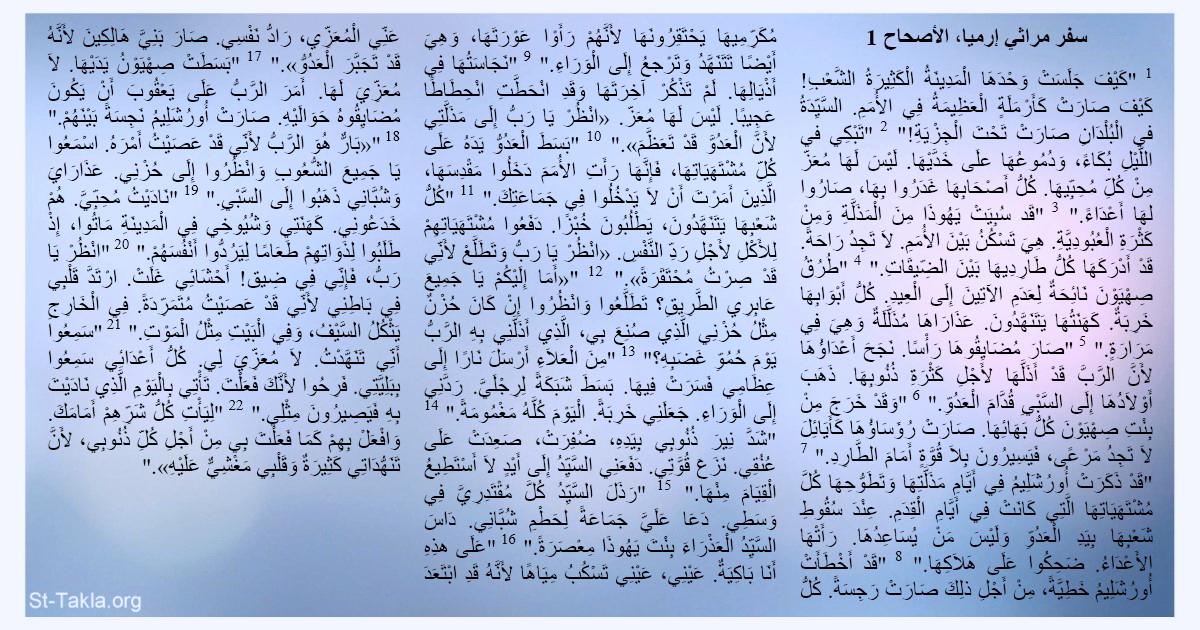 سفر مراثي إرميا، الأصحاح 1
1 "كَيْفَ جَلَسَتْ وَحْدَهَا الْمَدِينَةُ الْكَثِيرَةُ الشَّعْبِ!
كَيْفَ صَارَتْ كَأَرْمَلَةٍ الْعَظِيمَةُ فِي الأُمَمِ. السَّيِّدَةُ
فِي الْبُلْدَانِ صَارَتْ تَحْتَ الْجِزْيَةِ!" 2 "تَبْكِي فِي
اللَّيْلِ بُكَاءً، وَدُمُوعُهَا عَلَى خَدَّيْهَا. لَيْسَ لَهَا مُعَزٍّ
مِنْ كُلِّ مُحِبِّيهَا. كُلُّ أَصْحَابِهَا غَدَرُوا بِهَا، صَارُوا
لَهَا أَعْدَاءً." 3 "قَد سُبِيَتْ يَهُوذَا مِنَ الْمَذَلَّةِ وَمِنْ
كَثْرَةِ الْعُبُودِيَّةِ. هِيَ تَسْكُنُ بَيْنَ الأُمَمِ. لاَ تَجِدُ رَاحَةً.
قَدْ أَدْرَكَهَا كُلُّ طَارِدِيهَا بَيْنَ الضِّيقَاتِ." 4 "طُرُقُ
صِهْيَوْنَ نَائِحَةٌ لِعَدَمِ الآتِينَ إِلَى الْعِيدِ. كُلُّ أَبْوَابِهَا
خَرِبَةٌ. كَهَنَتُهَا يَتَنَهَّدُونَ. عَذَارَاهَا مُذَلَّلَةٌ وَهِيَ فِي
مَرَارَةٍ." 5 "صَارَ مُضَايِقُوهَا رَأْسًا. نَجَحَ أَعْدَاؤُهَا
لأَنَّ الرَّبَّ قَدْ أَذَلَّهَا لأَجْلِ كَثْرَةِ ذُنُوبِهَا. ذَهَبَ
أَوْلاَدُهَا إِلَى السَّبْيِ قُدَّامَ الْعَدُوِّ." 6 "وَقَدْ خَرَجَ مِنْ
بِنْتِ صِهْيَوْنَ كُلُّ بَهَائِهَا. صَارَتْ رُؤَسَاؤُهَا كَأَيَائِلَ
لاَ تَجِدُ مَرْعًى، فَيَسِيرُونَ بِلاَ قُوَّةٍ أَمَامَ الطَّارِدِ." 7
"قَدْ ذَكَرَتْ أُورُشَلِيمُ فِي أَيَّامِ مَذَلَّتِهَا وَتَطَوُّحِهَا كُلَّ
مُشْتَهَيَاتِهَا الَّتِي كَانَتْ فِي أَيَّامِ الْقِدَمِ. عِنْدَ سُقُوطِ
شَعْبِهَا بِيَدِ الْعَدُوِّ وَلَيْسَ مَنْ يُسَاعِدُهَا. رَأَتْهَا
الأَعْدَاءُ. ضَحِكُوا عَلَى هَلاَكِهَا." 8 "قَدْ أَخْطَأَتْ
أُورُشَلِيمُ خَطِيَّةً، مِنْ أَجْلِ ذلِكَ صَارَتْ رَجِسَةً. كُلُّ
مُكَرِّمِيهَا يَحْتَقِرُونَهَا لأَنَّهُمْ رَأَوْا عَوْرَتَهَا، وَهِيَ
أَيْضًا تَتَنَهَّدُ وَتَرْجعُ إِلَى الْوَرَاءِ." 9 "نَجَاسَتُهَا فِي
أَذْيَالِهَا. لَمْ تَذْكُرْ آخِرَتَهَا وَقَدِ انْحَطَّتِ انْحِطَاطًا
عَجِيبًا. لَيْسَ لَهَا مُعَزٍّ. «انْظُرْ يَا رَبُّ إِلَى مَذَلَّتِي
لأَنَّ الْعَدُوَّ قَدْ تَعَظَّمَ»." 10 "بَسَطَ الْعَدُوُّ يَدَهُ عَلَى
كُلِّ مُشْتَهَيَاتِهَا، فَإِنَّهَا رَأَتِ الأُمَمَ دَخَلُوا مَقْدِسَهَا،
الَّذِينَ أَمَرْتَ أَنْ لاَ يَدْخُلُوا فِي جَمَاعَتِكَ." 11 "كُلُّ
شَعْبِهَا يَتَنَهَّدُونَ، يَطْلُبُونَ خُبْزًا. دَفَعُوا مُشْتَهَيَاتِهِمْ
لِلأَكْلِ لأَجْلِ رَدِّ النَّفْسِ. «انْظُرْ يَا رَبُّ وَتَطَلَّعْ لأَنِّي
قَدْ صِرْتُ مُحْتَقَرَةً»." 12 "«أَمَا إِلَيْكُمْ يَا جَمِيعَ
عَابِرِي الطَّرِيقِ؟ تَطَلَّعُوا وَانْظُرُوا إِنْ كَانَ حُزْنٌ
مِثْلُ حُزْنِي الَّذِي صُنِعَ بِي، الَّذِي أَذَلَّنِي بِهِ الرَّبُّ
يَوْمَ حُمُوِّ غَضَبِهِ؟" 13 "مِنَ الْعَلاَءِ أَرْسَلَ نَارًا إِلَى
عِظَامِي فَسَرَتْ فِيهَا. بَسَطَ شَبَكَةً لِرِجْلَيَّ. رَدَّنِي
إِلَى الْوَرَاءِ. جَعَلَنِي خَرِبَةً. الْيَوْمَ كُلَّهُ مَغْمُومَةً." 14
"شَدَّ نِيرَ ذُنُوبِي بِيَدِهِ، ضُفِرَتْ، صَعِدَتْ عَلَى
عُنُقِي. نَزَعَ قُوَّتِي. دَفَعَنِي السَّيِّدُ إِلَى أَيْدٍ لاَ أَسْتَطِيعُ
الْقِيَامَ مِنْهَا." 15 "رَذَلَ السَّيِّدُ كُلَّ مُقْتَدِرِيَّ فِي
وَسَطِي. دَعَا عَلَيَّ جَمَاعَةً لِحَطْمِ شُبَّانِي. دَاسَ
السَّيِّدُ الْعَذْرَاءَ بِنْتَ يَهُوذَا مِعْصَرَةً." 16 "عَلَى هذِهِ
أَنَا بَاكِيَةٌ. عَيْنِي، عَيْنِي تَسْكُبُ مِيَاهًا لأَنَّهُ قَدِ ابْتَعَدَ
عَنِّي الْمُعَزِّي، رَادُّ نَفْسِي. صَارَ بَنِيَّ هَالِكِينَ لأَنَّهُ
قَدْ تَجَبَّرَ الْعَدُوُّ»." 17 "بَسَطَتْ صِهْيَوْنُ يَدَيْهَا. لاَ
مُعَزِّيَ لَهَا. أَمَرَ الرَّبُّ عَلَى يَعْقُوبَ أَنْ يَكُونَ
مُضَايِقُوهُ حَوَالَيْهِ. صَارَتْ أُورُشَلِيمُ نَجِسَةً بَيْنَهُمْ."
18 "«بَارٌّ هُوَ الرَّبُّ لأَنِّي قَدْ عَصَيْتُ أَمْرَهُ. اسْمَعُوا
يَا جَمِيعَ الشُّعُوبِ وَانْظُرُوا إِلَى حُزْنِي. عَذَارَايَ
وَشُبَّانِي ذَهَبُوا إِلَى السَّبْيِ." 19 "نَادَيْتُ مُحِبِّيَّ. هُمْ
خَدَعُونِي. كَهَنَتِي وَشُيُوخِي فِي الْمَدِينَةِ مَاتُوا، إِذْ
طَلَبُوا لِذَوَاتِهِمْ طَعَامًا لِيَرُدُّوا أَنْفُسَهُمْ." 20 "انْظُرْ يَا
رَبُّ، فَإِنِّي فِي ضِيق! أَحْشَائِي غَلَتْ. ارْتَدَّ قَلْبِي
فِي بَاطِنِي لأَنِّي قَدْ عَصَيْتُ مُتَمَرِّدَةً. فِي الْخَارِجِ
يَثْكُلُ السَّيْفُ، وَفِي الْبَيْتِ مِثْلُ الْمَوْتِ." 21 "سَمِعُوا
أَنِّي تَنَهَّدْتُ. لاَ مُعَزِّيَ لِي. كُلُّ أَعْدَائِي سَمِعُوا
بِبَلِيَّتِي. فَرِحُوا لأَنَّكَ فَعَلْتَ. تَأْتِي بِالْيَوْمِ الَّذِي نَادَيْتَ
بِهِ فَيَصِيرُونَ مِثْلِي." 22 "لِيَأْتِ كُلُّ شَرِّهِمْ أَمَامَكَ.
وَافْعَلْ بِهِمْ كَمَا فَعَلْتَ بِي مِنْ أَجْلِ كُلِّ ذُنُوبِي، لأَنَّ
تَنَهُّدَاتِي كَثِيرَةٌ وَقَلْبِي مَغْشِيٌّ عَلَيْهِ»."
St-Takla.org